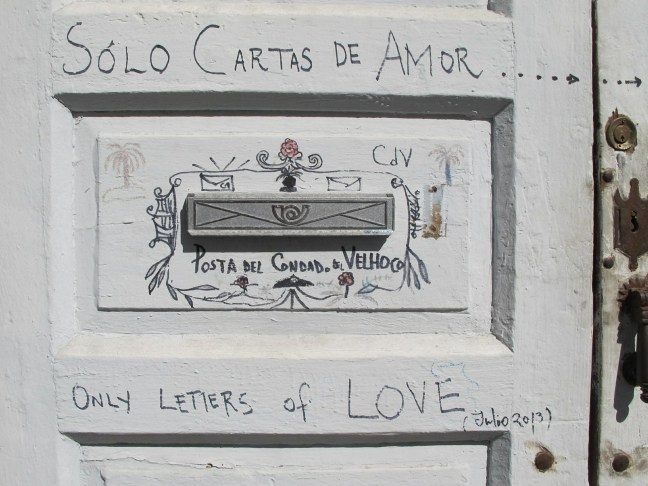 SÓLO CARTAS DE AMOR
CdV
POSTA DEL CONDADO DEL VELHOCO
ONLY LETTERS of LOVE
(Julio 2013)